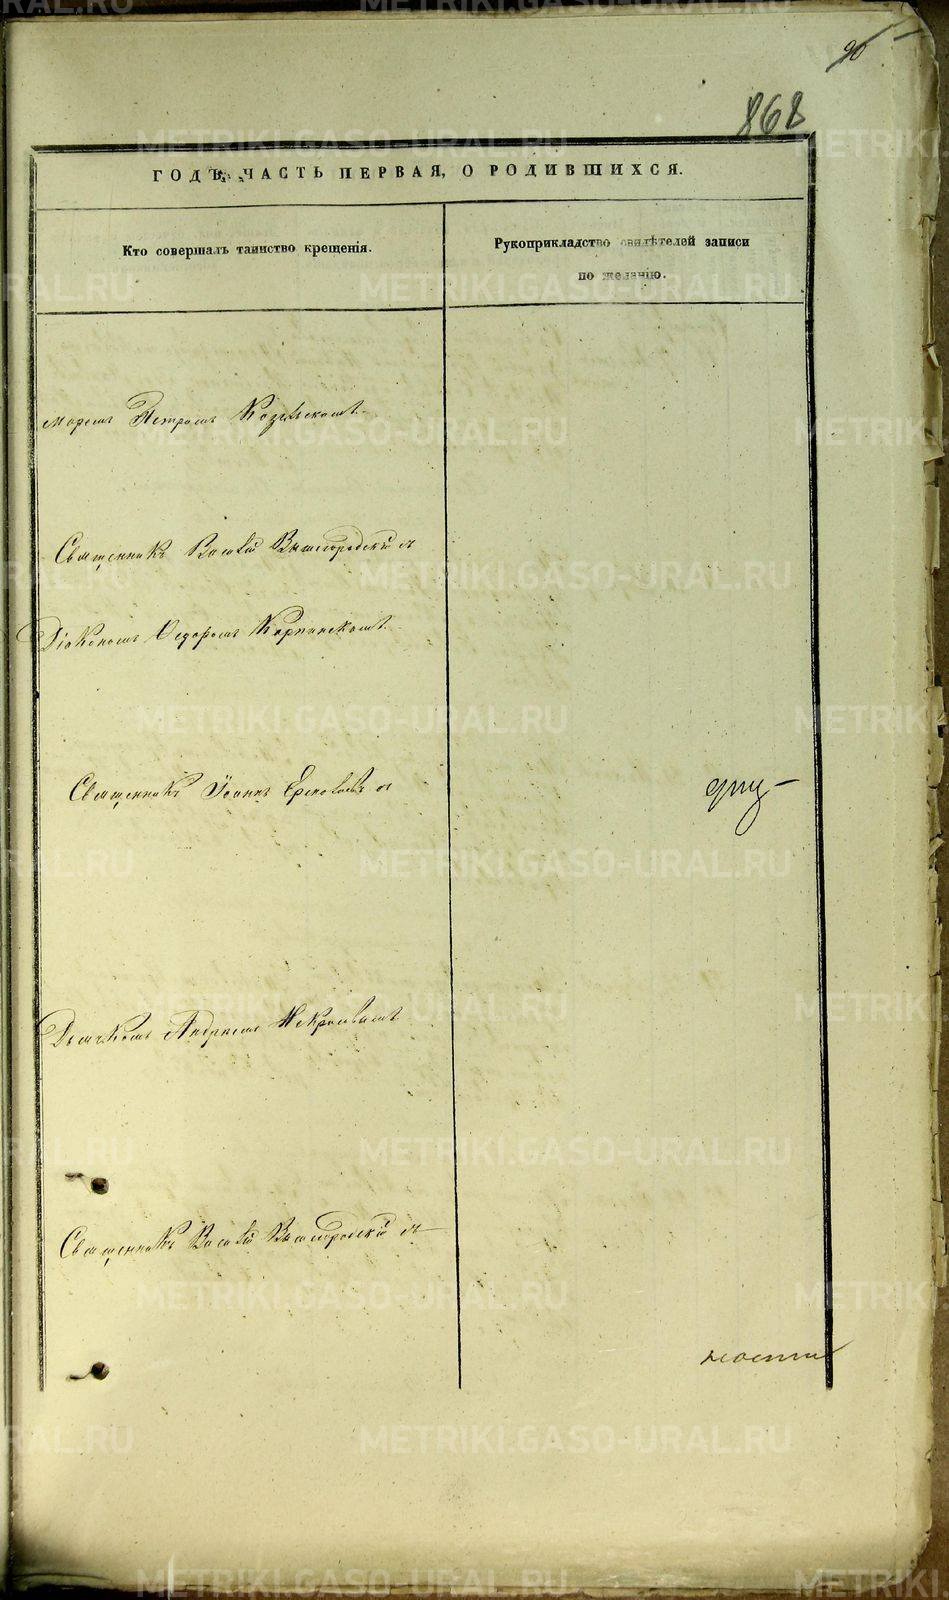 90
868
ГОДѢ, ЧАСТЬ ПЕРВАЯ, О РОДИВШИХСЯ.
Кто совершалъ таинство крещенія.
Рукоприкладство свидѣтелей записи
по желанію.
маремъ Петромъ Козельскимъ.
Священникъ Василій Вышегородскій съ
Діакономъ Федоромъ Карпинскимъ.
Священникъ Іоаннъ съ
Дьячкомъ Андреемъ Некрасовымъ
Священникъ Василій Вышегородскій съ
METRIKI.GASO-URAL.RU